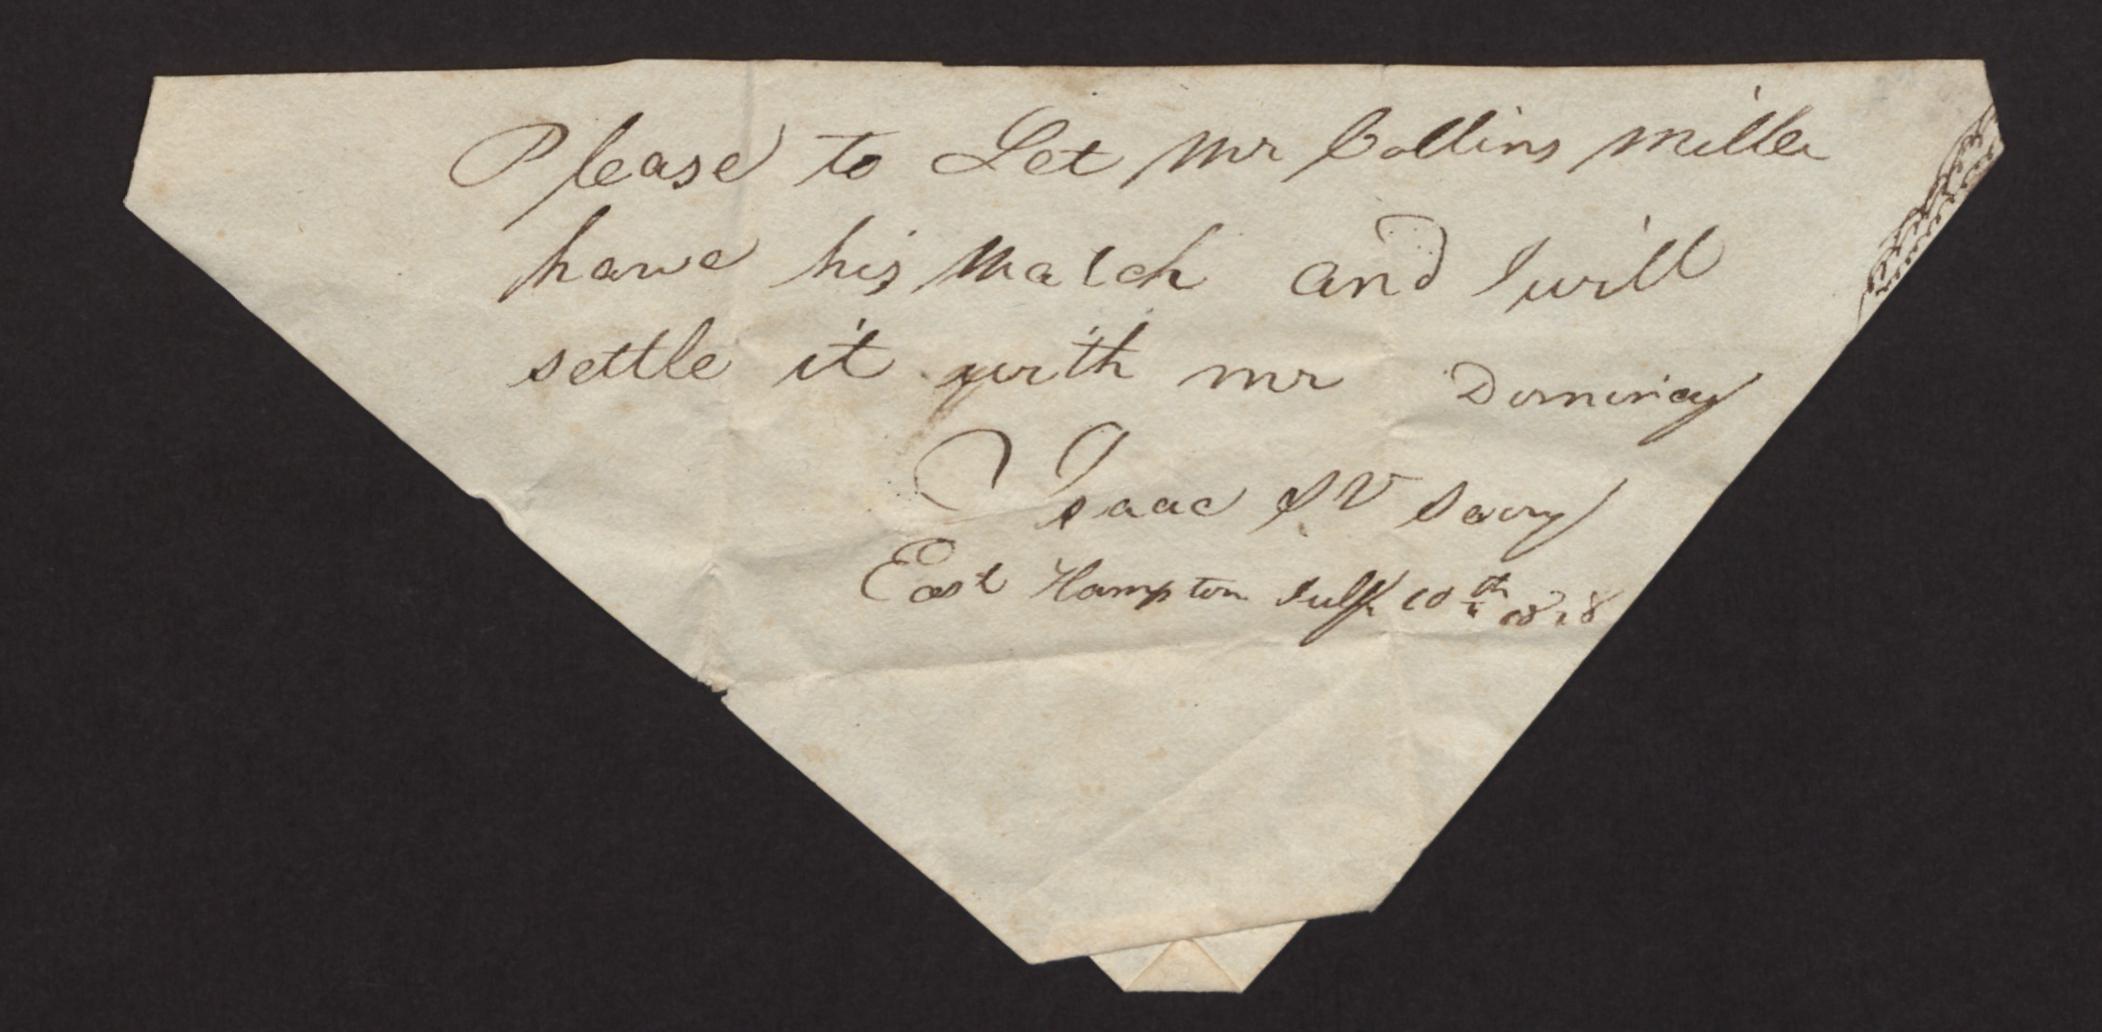 Please to Let Mr Collins Miller
have his Watch and I will
settle it with mr Dominey
Isaac S V Savry
East Hampton July 10th 1828